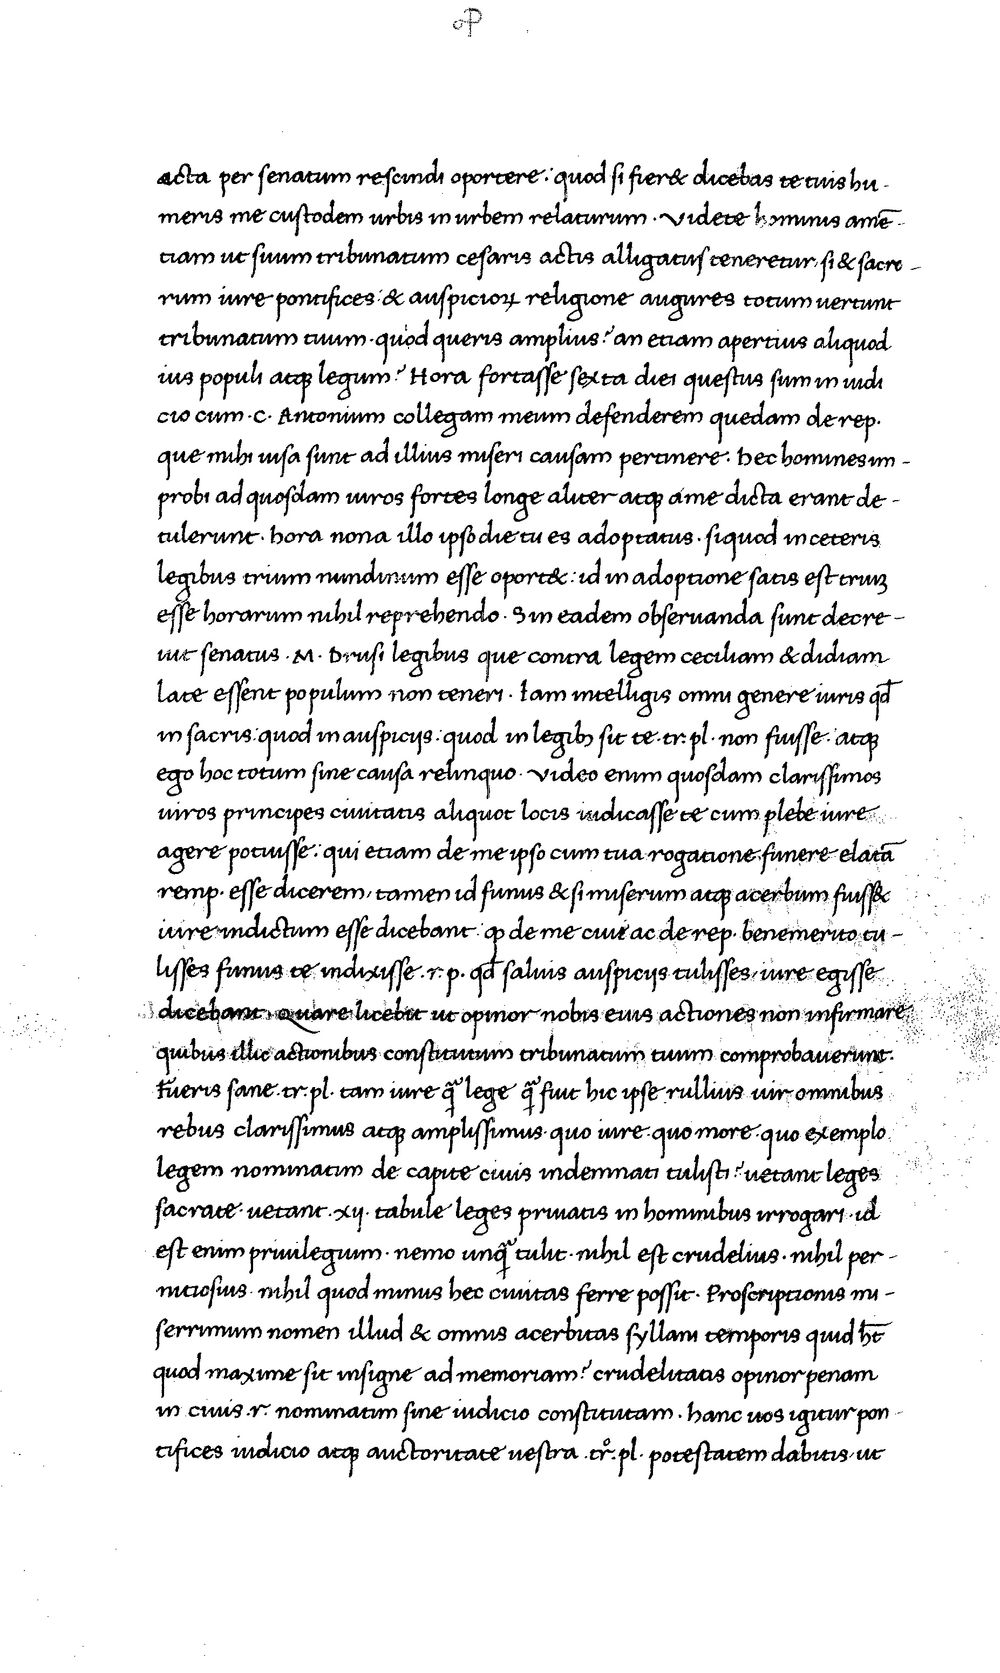 oP
acta per senatum rescindi oportere: quod si fier& dicebas te tuis hu-
meris me custodem urbis in urbem relaturum. Videte hominis amē-
tiam ut suum tribunatum cesaris actis alligatus teneretur, si & sacro-
rum iure pontifices: & auspicioꝝ religione augures totum uertunt
tribunatum tuum. quod queris amplius? an etiam apertius aliquod
ius populi atqꝫ legum? Hora fortasse sexta diei questus sum in iudi
cio cum .C. Antonium collegam meum defenderem quedam de rep.
que mihi uisa sunt ad illius miseri causam pertinere. hec homines im-
probi ad quosdam uiros fortes longe aliter atqꝫ ame dicta erant de-
tulerunt. hora nona illo ipso die tu es adoptatus. siquod in ceteris
legibus trium nundinum esse oport&: id in adoptione satis est triuꝫ
esse horarum nihil reprehendo. Sin eadem obseruanda sunt decre-
uit senatus .M. Drusi legibus que contra legem ceciliam & didiam
late essent populum non teneri. Iam intelligis omni genere iuris qđ
in sacris: quod in auspicijs: quod in legibꝫ sit te .tr. pl. non fuisse: atqꝫ
ego hoc totum sine causa relinquo. Video enim quosdam clarissimos
uiros principes ciuitatis aliquot locis iudicasse te cum plebe iure
agere potuisse: qui etiam de me ipso cum tua rogatione funere elatā
remp. esse dicerem, tamen id funus & si miserum atqꝫ acerbum fuiss&
iure indictum esse dicebant. ꝙ de me ciue ac de rep. benemerito tu-
lisses funus te indixisse .r. p. qđ saluis auspicijs tulisses, iure egisse
dicebant. Quare licebit ut opinor nobis eius actiones non infirmare
quibus illic actionibus constitutum tribunatum tuum comprobauerunt.
Fueris sane .tr. pl. tam iure q̄ lege q̄ fuit hic ipse rullius uir omnibus
rebus clarissimus atqꝫ amplissimus. quo iure. quo more. quo exemplo
legem nominatim de capite ciuis indemnati tulisti? uetant leges
sacrate. uetant .xij. tabule leges priuatis in hominibus irrogari. id
est enim priuilegium. nemo unq̄ tulit. nihil est crudelius. nihil per-
nitiosius. nihil quod minus hec ciuitas ferre possit. Proscriptionis mi-
serrimum nomen illud & omnis acerbitas syllani temporis quid h̄t
quod maxime sit insigne ad memoriam? crudelitatis opinor penam
in ciuis .r. nominatim sine iudicio constitutam. hanc uos igitur pon-
tifices iudicio atqꝫ auctoritate uestra .tr. pl. potestatem dabitis, ut